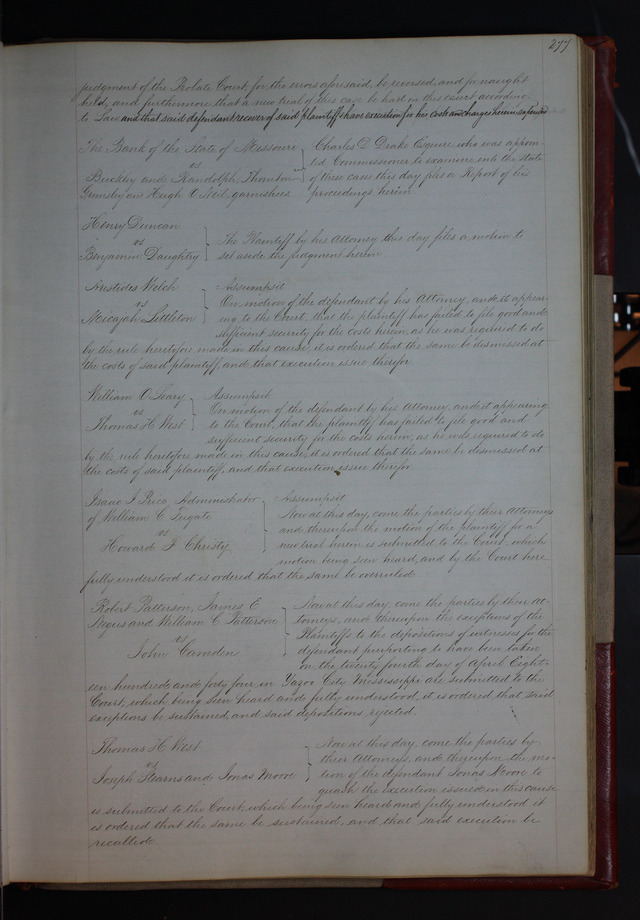 277
judgment of the Probate Court, for the errors aforesaid, be reversed, and for naught
held, and furthermore that a new trial of this case be had in this court according
to Law and that said defendant recover of said plaintiff & have execution for his costs and charges herein
The Bank of the State of Missouri
vs
Buckley and Randolph, Thornton
Grimsley and Hugh O Neil, garnishees
Charles D Drake Esquire who was appoin-
ted Commissioner to examine into the state
of these cases this day files a Report of his
proceedings herein
Henry Duncan
vs
Benjamin Daughtry
The Plaintiff by his Attorney this day files a motion to
set aside the judgment herein
Aristides Welch
vs
Micajah Littleton
Assumpsit
On motion of the defendant by his Attorney, and it appear-
ing to the Court, that the plaintiff has failed to file good and
sufficient security for the costs herein, as he was required to do
by the rule heretofore made in this cause, it is ordered that the same be dismissed at
the costs of said plaintiff, and that execution issue therefor
William O Leary
vs
Thomas H West
Assumpsit
On motion of the defendant by his Attorney, and it appearing
to the Court, that the plaintiff has failed to file good and
sufficient security for the costs herein, as he was required to do
by the rule heretofore made in this cause, it is ordered that the same be dismissed at
the costs of said plaintiff, and that execution issue therefor
Isaac J Price Administrator
of William C Fugate
vs
Howard F Christy
Assumpsit
Now at this day, come the parties by their Attorneys
and thereupon the motion of the plaintiff for a
new trial herein is submitted to the Court, which
motion being seen heard, and by the Court here
fully understood it is ordered that the same be overruled
Robert Patterson, James E
Negus and William C Patterson
vs
John Camden
Now at this day, come the parties by their At-
torneys, and thereupon the exceptions of the
Plaintiffs to the depositions of witnesses for the
defendant purporting to have been taken
on the twenty fourth day of April Eight-
een hundred and forty four, in Yazoo City Mississippi are submitted to the
Court, which being seen heard and fully understood, it is ordered that said
exceptions be sustained, and said depositions rejected
Thomas H West
vs
Joseph Stearns and Jonas Moore
Now at this day, come the parties by
their Attorneys, and thereupon the mo-
tion of the defendant Jonas Moore to
quash the execution issued in this cause
is submitted to the Court, which being seen heard and fully understood it
is ordered that the same be sustained, and that said execution be
recalled